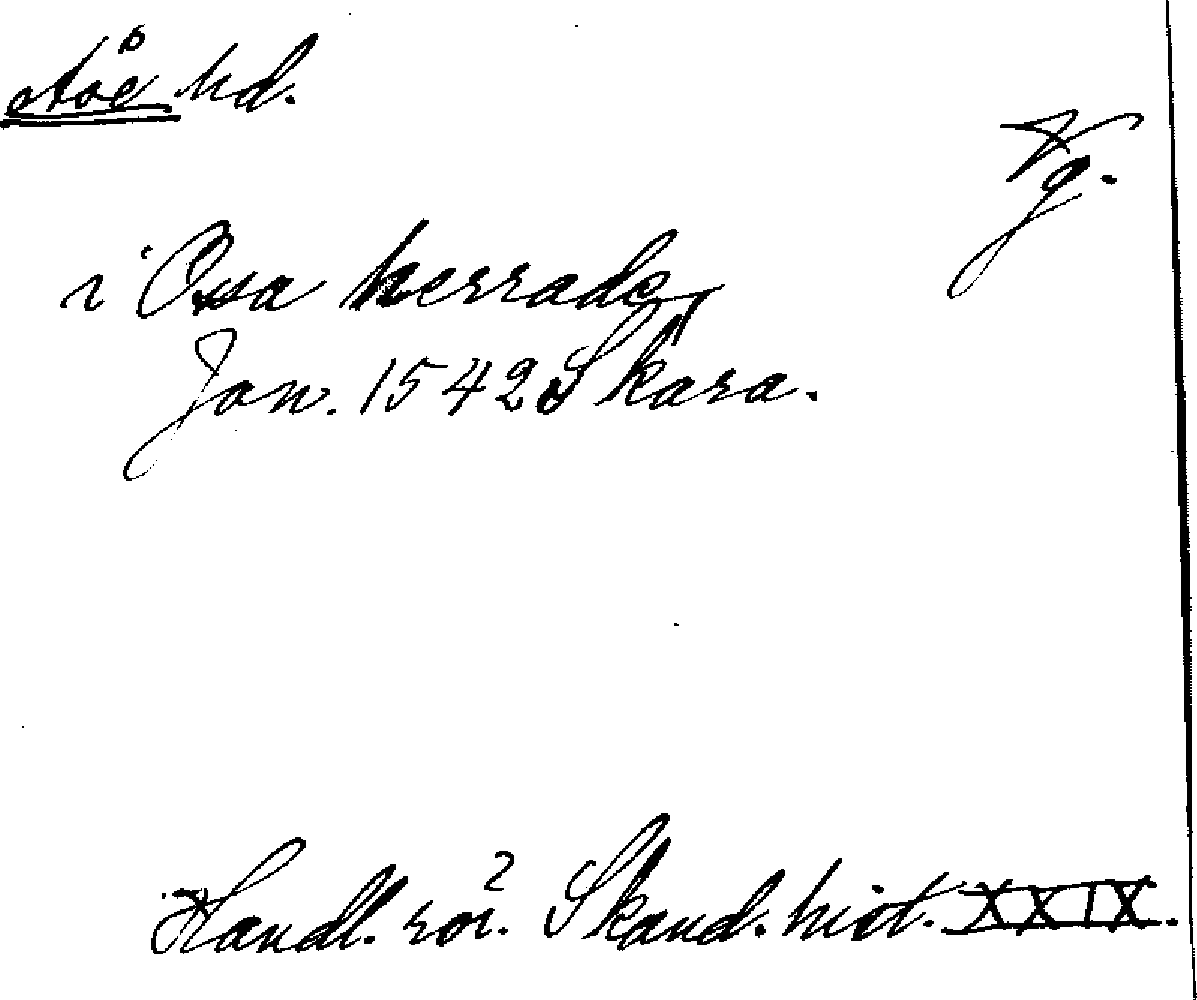 Åse hd.
Vg.
i Ossa herrade
Jan. 1542 Skara.
Handl. rör. Skand. hist. XXIX.